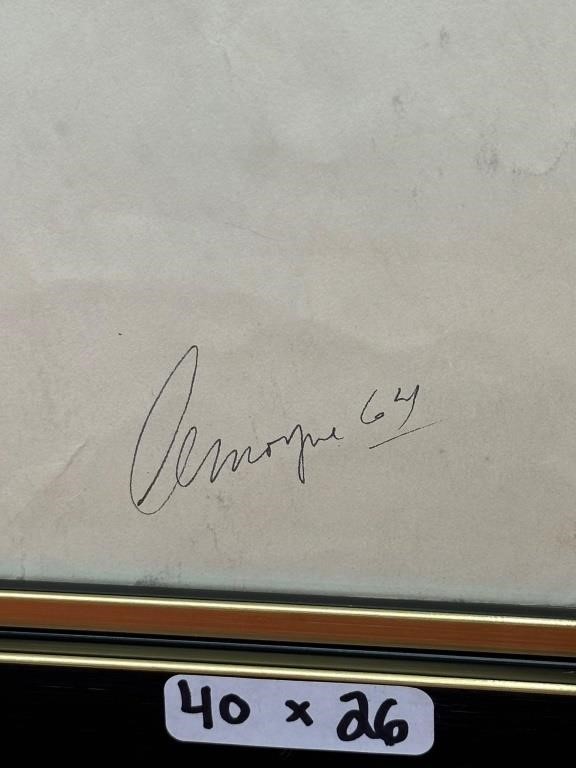 Lemoyne 64
40 x 26